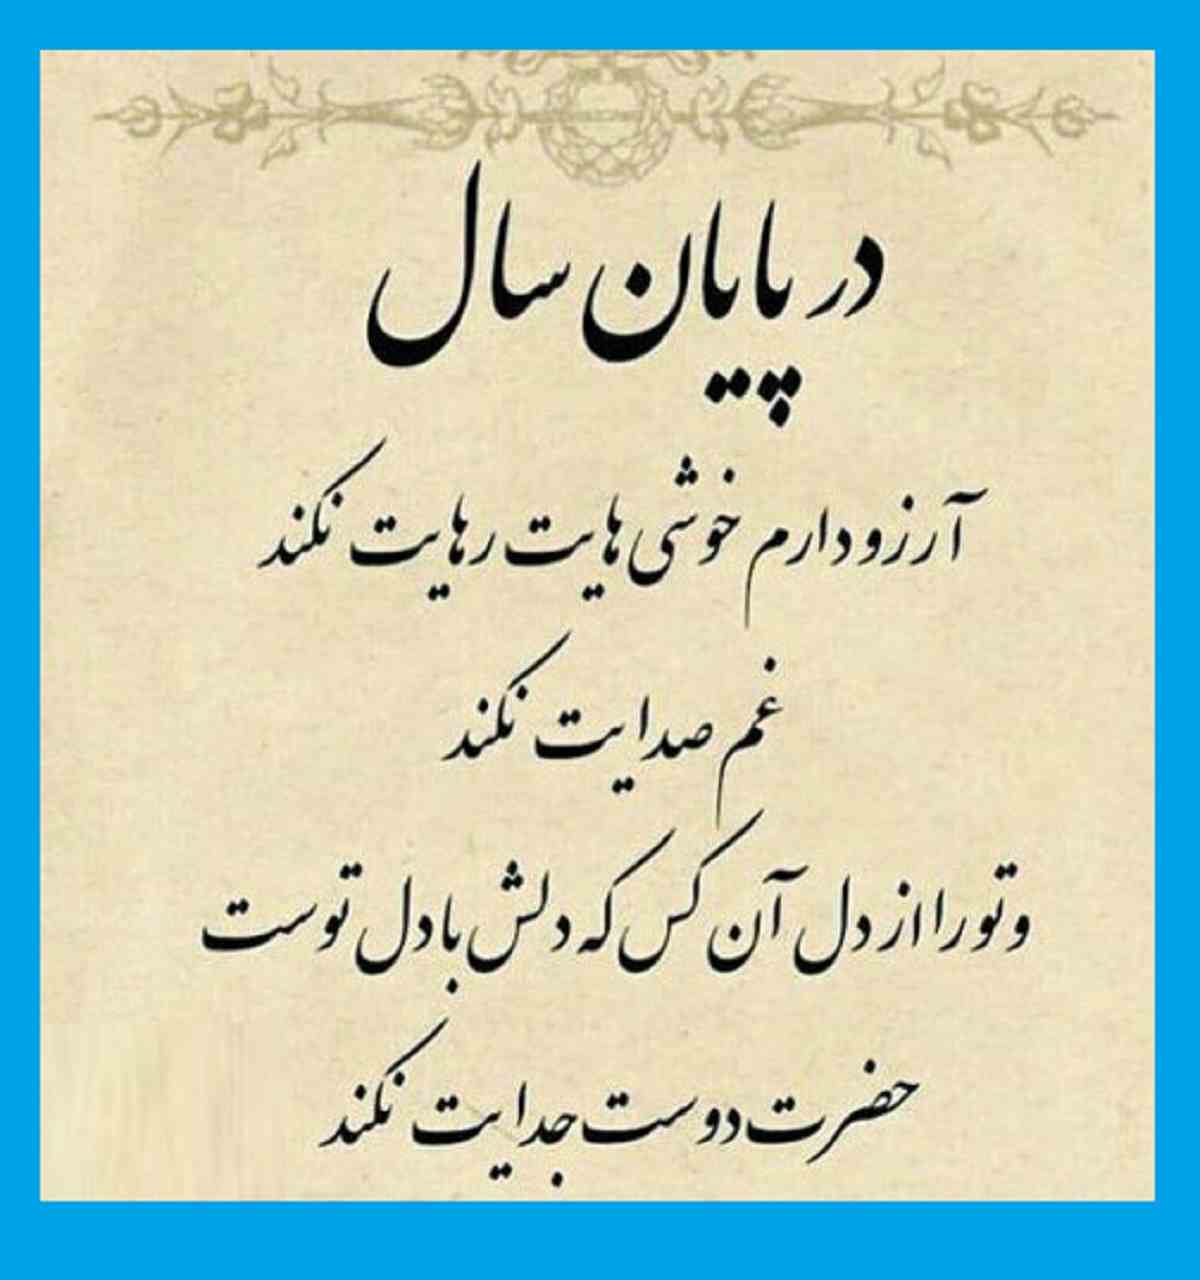 در پایان سال
آرزو دارم خوشی هایت رهایت نکند
غم صدایت نکند
و تو را از دل آن کس که دلش با دل توست
حضرت دوست جدایت نکند